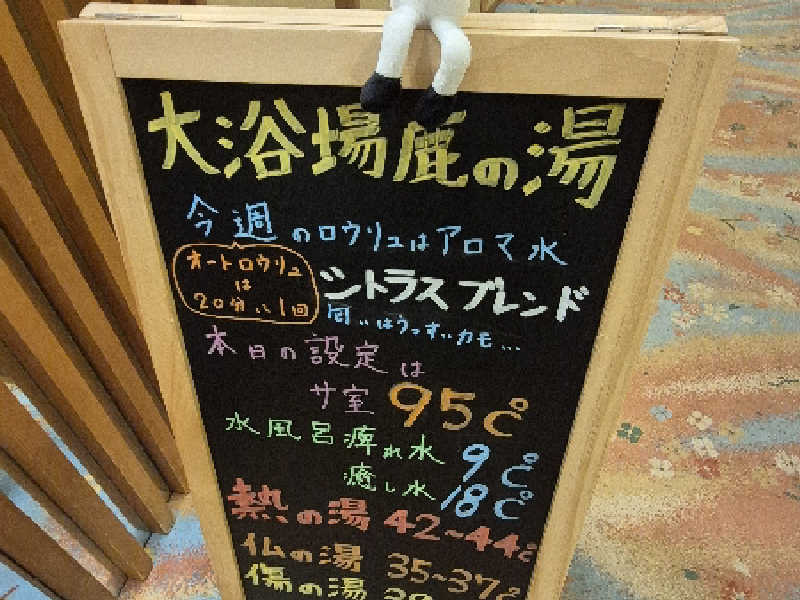 大浴場鹿の湯
今週のロウリュはアロマ水
オートロウリュ
は
20分に1回
シトラスブレンド
匂いはうっすいカモ…
本日の設定は
サ室 95℃
水風呂痺れ水 9℃
癒し水 18℃
熱の湯 42~44℃
仏の湯 35~37℃
傷の湯